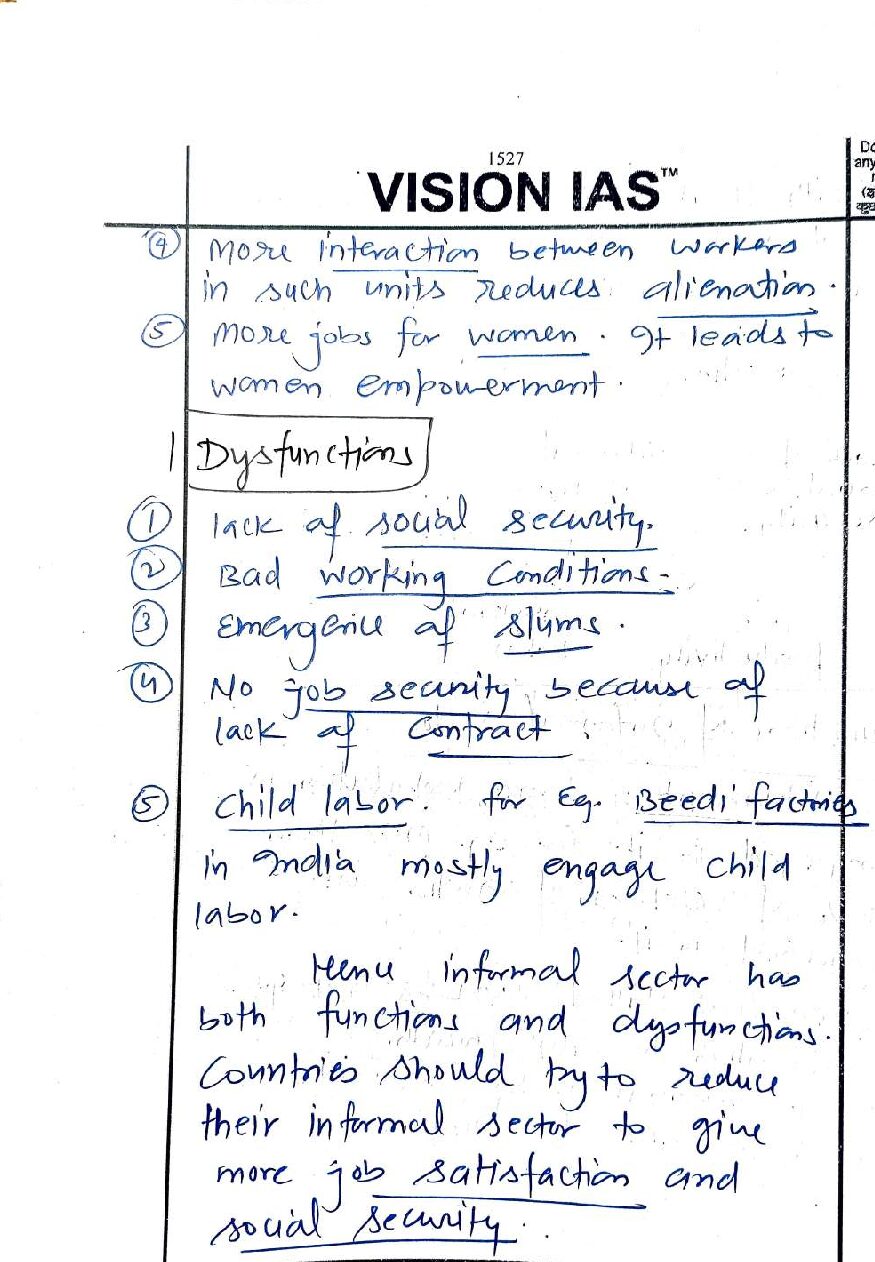 1527
VISION IAS™
Do
any
④ More interaction between workers
in such units reduces alienation.
⑤ More jobs for women. It leads to
women empowerment.
Dysfunctions
① lack of social security.
② Bad working Conditions.
③ Emergence of slums.
④ No job security because of
lack of Contract.
⑤ Child labor. for Eg. Beedi factories
in India mostly engage child
labor.
Hence informal sector has
both functions and dysfunctions.
Countries should try to reduce
their informal sector to give
more job satisfaction and
social security.